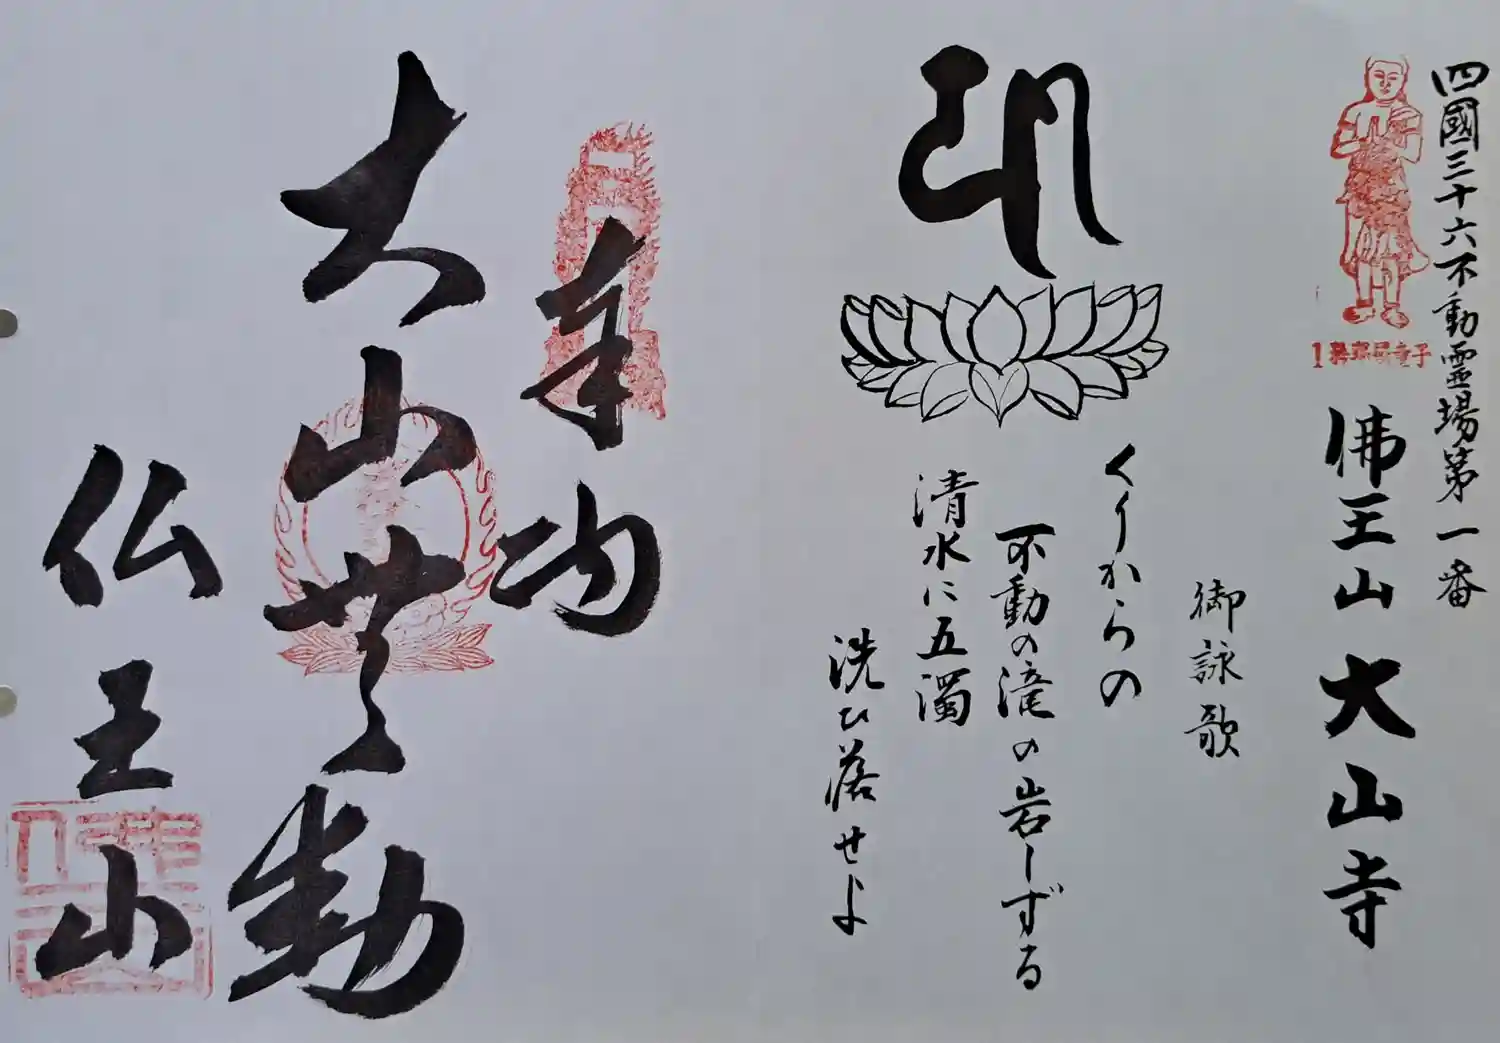 四國三十六不動霊場第一番
佛王山 大山寺
御詠歌
くりからの
不動の滝の岩しずる
清水に五濁
洗ひ落せよ
奉納
仏王山